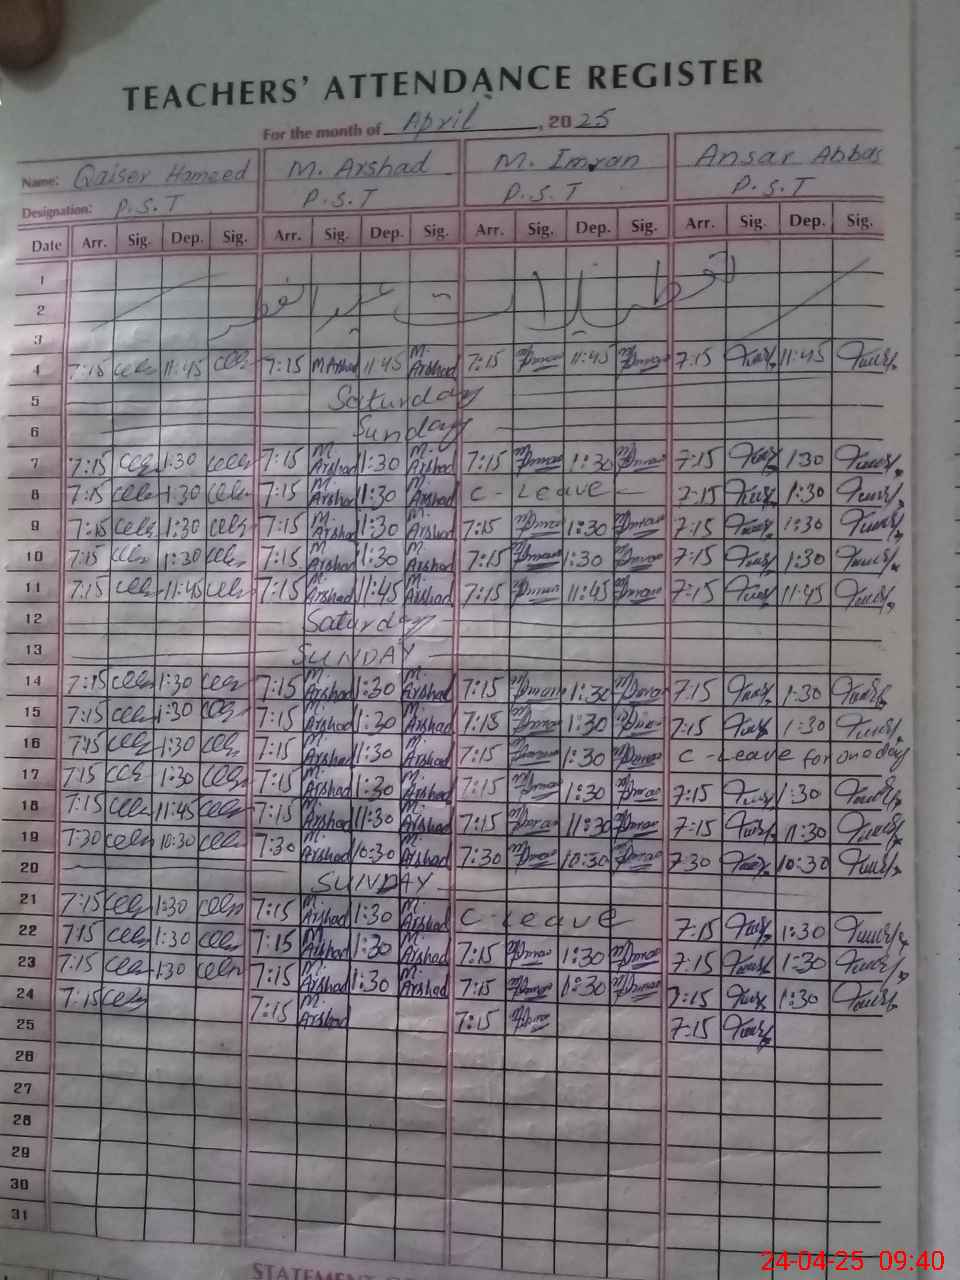 TEACHERS' ATTENDANCE REGISTER
For the month of April, 2025
Name: Qaiser Hameed M. Arshad M. Imran Ansar Abbas
Designation: P.S.T P.S.T P.S.T P.S.T
Date Arr. Sig. Dep. Sig. Arr. Sig. Dep. Sig. Arr. Sig. Dep. Sig. Arr. Sig. Dep. Sig.
1
2 تعطیلات عید الفطر
3
4 7:15 11:45 7:15 M Arshad 11:45 M. Arshad 7:15 11:45 7:15 11:45
5 Saturday
6 Sunday
7 7:15 1:30 7:15 M. Arshad 1:30 M. Arshad 7:15 1:30 7:15 1:30
8 7:15 1:30 7:15 M. Arshad 1:30 M. Arshad C - Leave - 7:15 1:30
9 7:15 1:30 7:15 M. Arshad 1:30 M. Arshad 7:15 1:30 7:15 1:30
10 7:15 1:30 7:15 M. Arshad 1:30 M. Arshad 7:15 1:30 7:15 1:30
11 7:15 11:45 7:15 M. Arshad 11:45 M. Arshad 7:15 11:45 7:15 11:45
12 Saturday
13 SUNDAY
14 7:15 1:30 7:15 M. Arshad 1:30 M. Arshad 7:15 1:30 7:15 1:30
15 7:15 1:30 7:15 M. Arshad 1:30 M. Arshad 7:15 1:30 7:15 1:30
16 7:15 1:30 7:15 M. Arshad 1:30 M. Arshad 7:15 1:30 C - Leave for one day
17 7:15 1:30 7:15 M. Arshad 1:30 M. Arshad 7:15 1:30 7:15 1:30
18 7:15 11:45 7:15 M. Arshad 11:30 M. Arshad 7:15 11:30 7:15 11:30
19 7:30 10:30 7:30 M. Arshad 10:30 M. Arshad 7:30 10:30 7:30 10:30
20 SUNDAY
21 7:15 1:30 7:15 M. Arshad 1:30 M. Arshad C - Leave 7:15 1:30
22 7:15 1:30 7:15 M. Arshad 1:30 M. Arshad 7:15 1:30 7:15 1:30
23 7:15 1:30 7:15 M. Arshad 1:30 M. Arshad 7:15 1:30 7:15 1:30
24 7:15 7:15 M. Arshad 7:15 7:15
25
26
27
28
29
30
31
STATEMENT
24-04-25 09:40